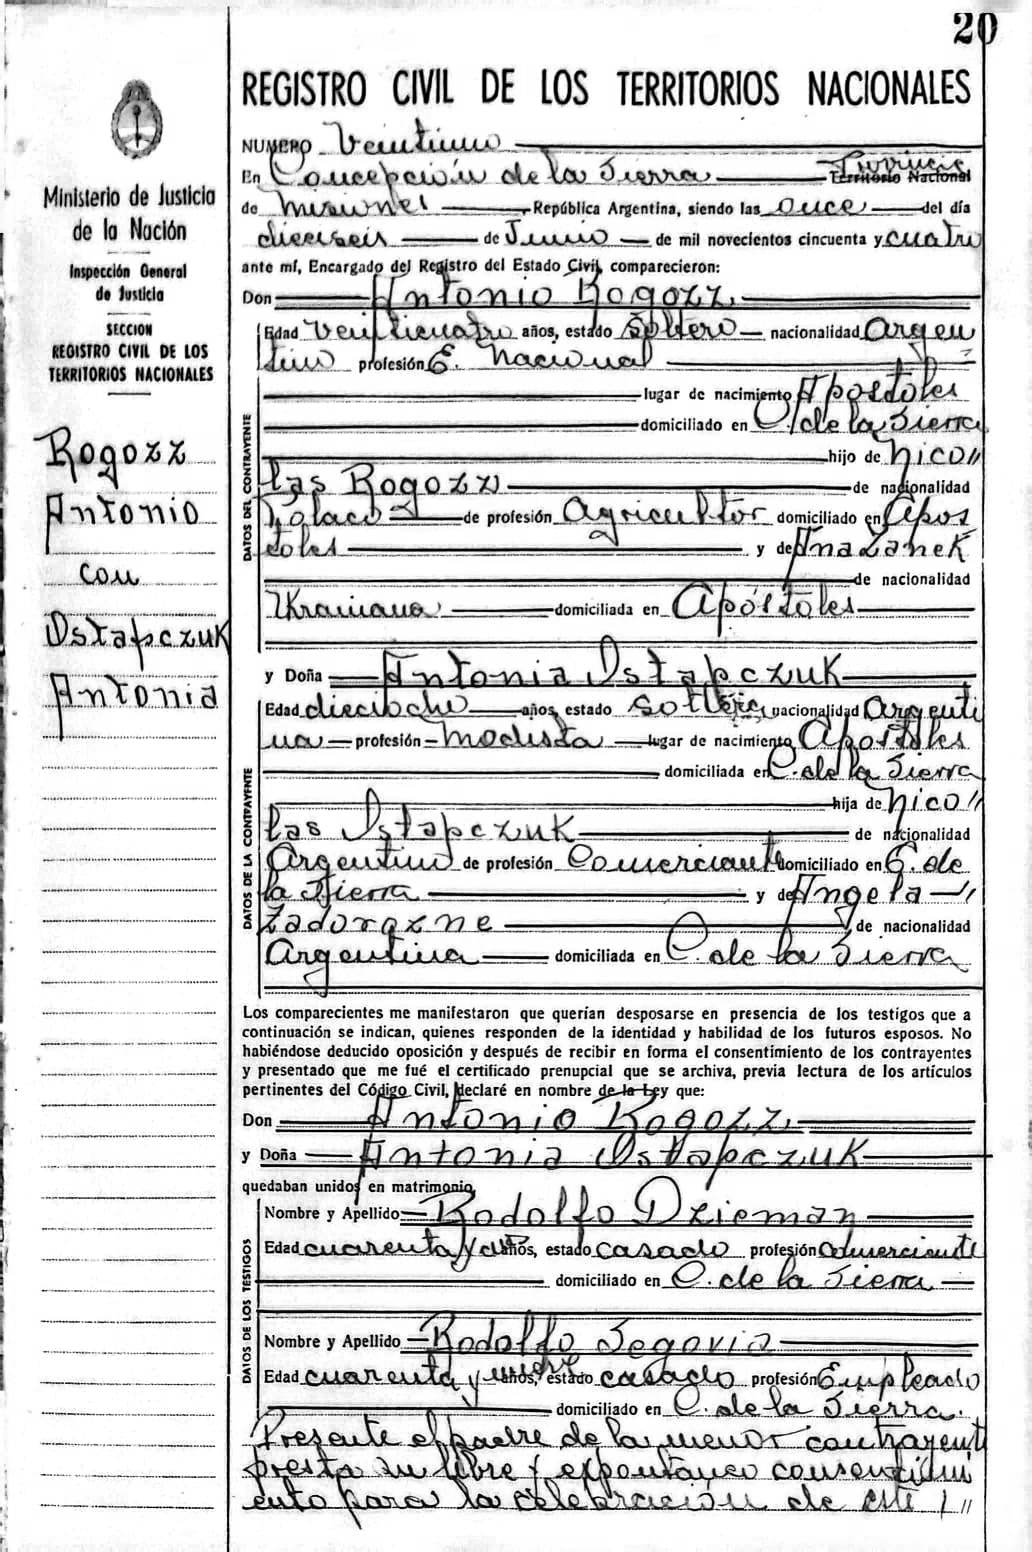 20
REGISTRO CIVIL DE LOS TERRITORIOS NACIONALES
Ministerio de Justicia
de la Nación
Inspección General
de Justicia
SECCION
REGISTRO CIVIL DE LOS
TERRITORIOS NACIONALES
Rogozz
Antonio
con
Ostapczuk
Antonia
NUMERO Veintiuno
Provincia
En Concepción de la Sierra Territorio Nacional
de Misiones República Argentina, siendo las once del día
dieciseis de Junio de mil novecientos cincuenta y cuatro
ante mí, Encargado del Registro del Estado Civil, comparecieron:
Don Antonio Rogozz
DATOS DEL CONTRAYENTE
Edad veinticuatro años, estado soltero nacionalidad argen
tino profesión E. Nacional
lugar de nacimiento Apostoles
domiciliado en C. de la Sierra
hijo de Nico//
las Rogozz de nacionalidad
Polaco de profesión Agricultor domiciliado en Apos
toles y de Ana Zanek
de nacionalidad
Ukraniana domiciliada en Apóstoles
y Doña Antonia Ostapczuk
DATOS DE LA CONTRAYENTE
Edad dieciocho años, estado soltera nacionalidad Argenti
na profesión Modista lugar de nacimiento Apostoles
domiciliada en C. de la Sierra
hija de Nico//
las Ostapczuk de nacionalidad
Argentino de profesión Comerciante domiciliado en C. de
la Sierra y de Angela //
Zadorozne de nacionalidad
Argentina domiciliada en C. de la Sierra
Los comparecientes me manifestaron que querían desposarse en presencia de los testigos que a
continuación se indican, quienes responden de la identidad y habilidad de los futuros esposos. No
habiéndose deducido oposición y después de recibir en forma el consentimiento de los contrayentes
y presentado que me fué el certificado prenupcial que se archiva, previa lectura de los artículos
pertinentes del Código Civil, declaré en nombre de la Ley que:
Don Antonio Rogozz
y Doña Antonia Ostapczuk
quedaban unidos en matrimonio
DATOS DE LOS TESTIGOS
Nombre y Apellido Rodolfo Dzieman
Edad cuarenta y años, estado casado profesión comerciante
domiciliado en C. de la Sierra
Nombre y Apellido Rodolfo Segovia
Edad cuarenta y nueve años, estado casado profesión Empleado
domiciliado en C. de la Sierra.
Presente el padre de la menor contrayente
presta su libre y expontaneo consentimi
ento para la celebración de este //